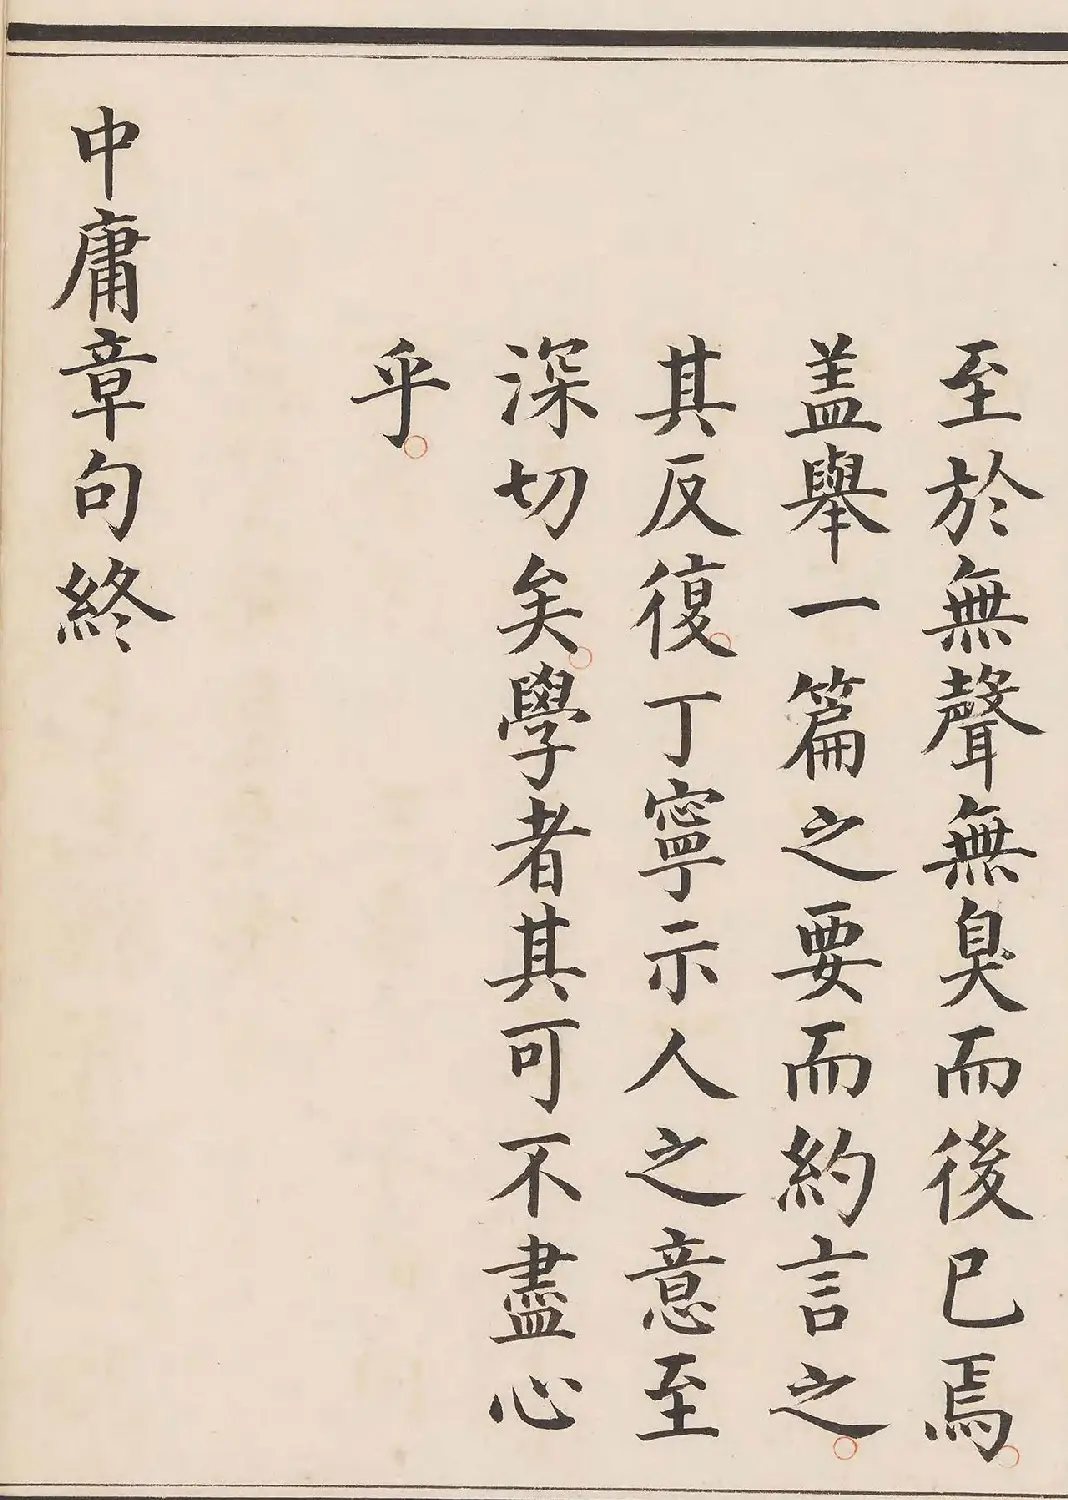 至於無聲無臭而後已焉。
盖舉一篇之要而約言之。
其反復。丁寧示人之意至
深切矣。學者其可不盡心
乎。
中庸章句終